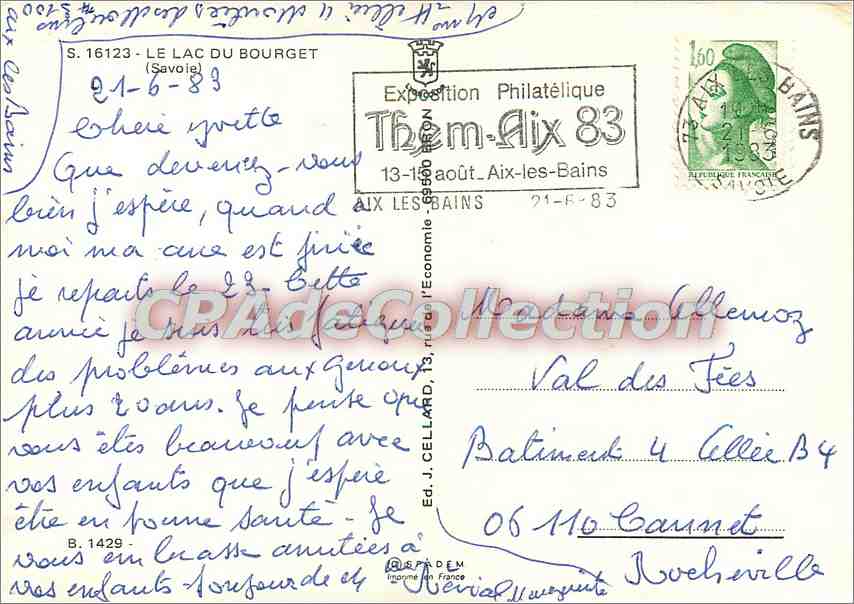 S. 16123 - LE LAC DU BOURGET
(Savoie)
21-6-83
Chère yvette
Que devenez-vous
bien j'espère, quand a
moi ma cure est finie
je repars le 23- Cette
année je suis très fatiguée
des problèmes aux genoux
plus 20 ans. Je pense que
vous êtes beaucoup avec
vos enfants que j'espère
être en bonne santé - Je
vous embrasse amitiées à
vos enfants - toujours de
B. 1429 -
aix les Bains
73100
Exposition Philatélique
Them-Aix 83
13-15 août_Aix-les-Bains
AIX LES BAINS 21-6-83
1,60
REPUBLIQUE FRANÇAISE
73 AIX LES BAINS
21-6
1983
SAVOIE
Ed. J. CELLARD, 13, rue de l'Economie - 69500 BRON
SPADEM
Imprimé en France
CPAdeCollection
Madame Allemoz
Val des Fées
Batiment 4 Allée B4
06110 Cannet
Rocheville
Marguerite